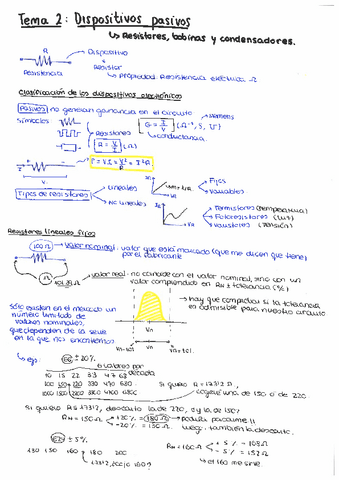 Tema 2: Dispositivos pasivos
↳ Resistores, bobinas y condensadores.
R → Dispositivo
↓
Resistor
Resistencia ↳ Propiedad: Resistencia eléctrica Ω
Clasificación de los dispositivos electrónicos
Pasivos: no generan ganancia en el circuito
Símbolos: Resistores
conductancia
R = V/I (Ω)
Tipos de resistores
Lineales → Fijos
Variables
No lineales → Termistores (temperatura)
Fotoresistores (luz)
Varistores (tensión)
Resistores lineales fijos
100Ω → valor nominal: valor que está marcado (que me dicen que tiene) por el fabricante
valor real: no coincide con el valor nominal, sino con un valor comprendido en RN ± tolerancia (%)
Sólo existen en el mercado un número limitado de valores nominales, que dependen de la serie en la que nos encontremos
→ hay que comprobar si la tolerancia es admisible para nuestro circuito
Vn-tol. Vn Vn+tol.
↳ ej: E6 ± 20%
6 valores por década
10 15 22 33 47 68
100 150 220 330 470 680
Si quiero R = 173'12 Ω,
cogeré una de 150 o de 220.
Si quiero R = 173'12, descarto la de 220, ¿y la de 150?
RN = 150Ω → +20% = 180Ω → podría pasarme!!
-20% =
luego: también la descarto.
E24 ± 5%
130 150 160 180 200
RN = 160Ω + 5% → 168Ω
- 5% → 152Ω
↳ el 160 me sirve.